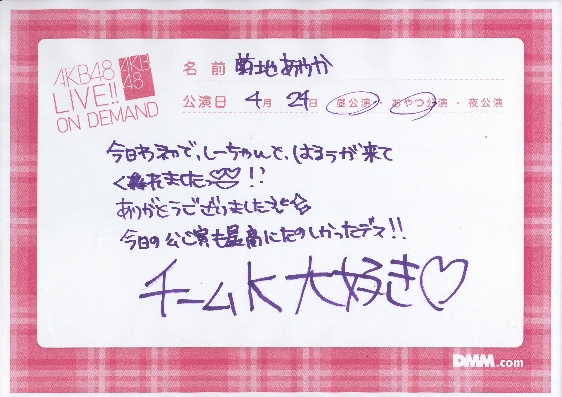 AKB48
LIVE!!
ON DEMAND
AKB
48
名前 菊地あやか
公演日 4月 24日 昼公演・おやつ公演・夜公演
で、しーちゃんと、はるうが来て
くれました♡!?
ありがとうございました
今日の公演も最高にたのしかったデス!!
チームK大好き♡
DMM.com